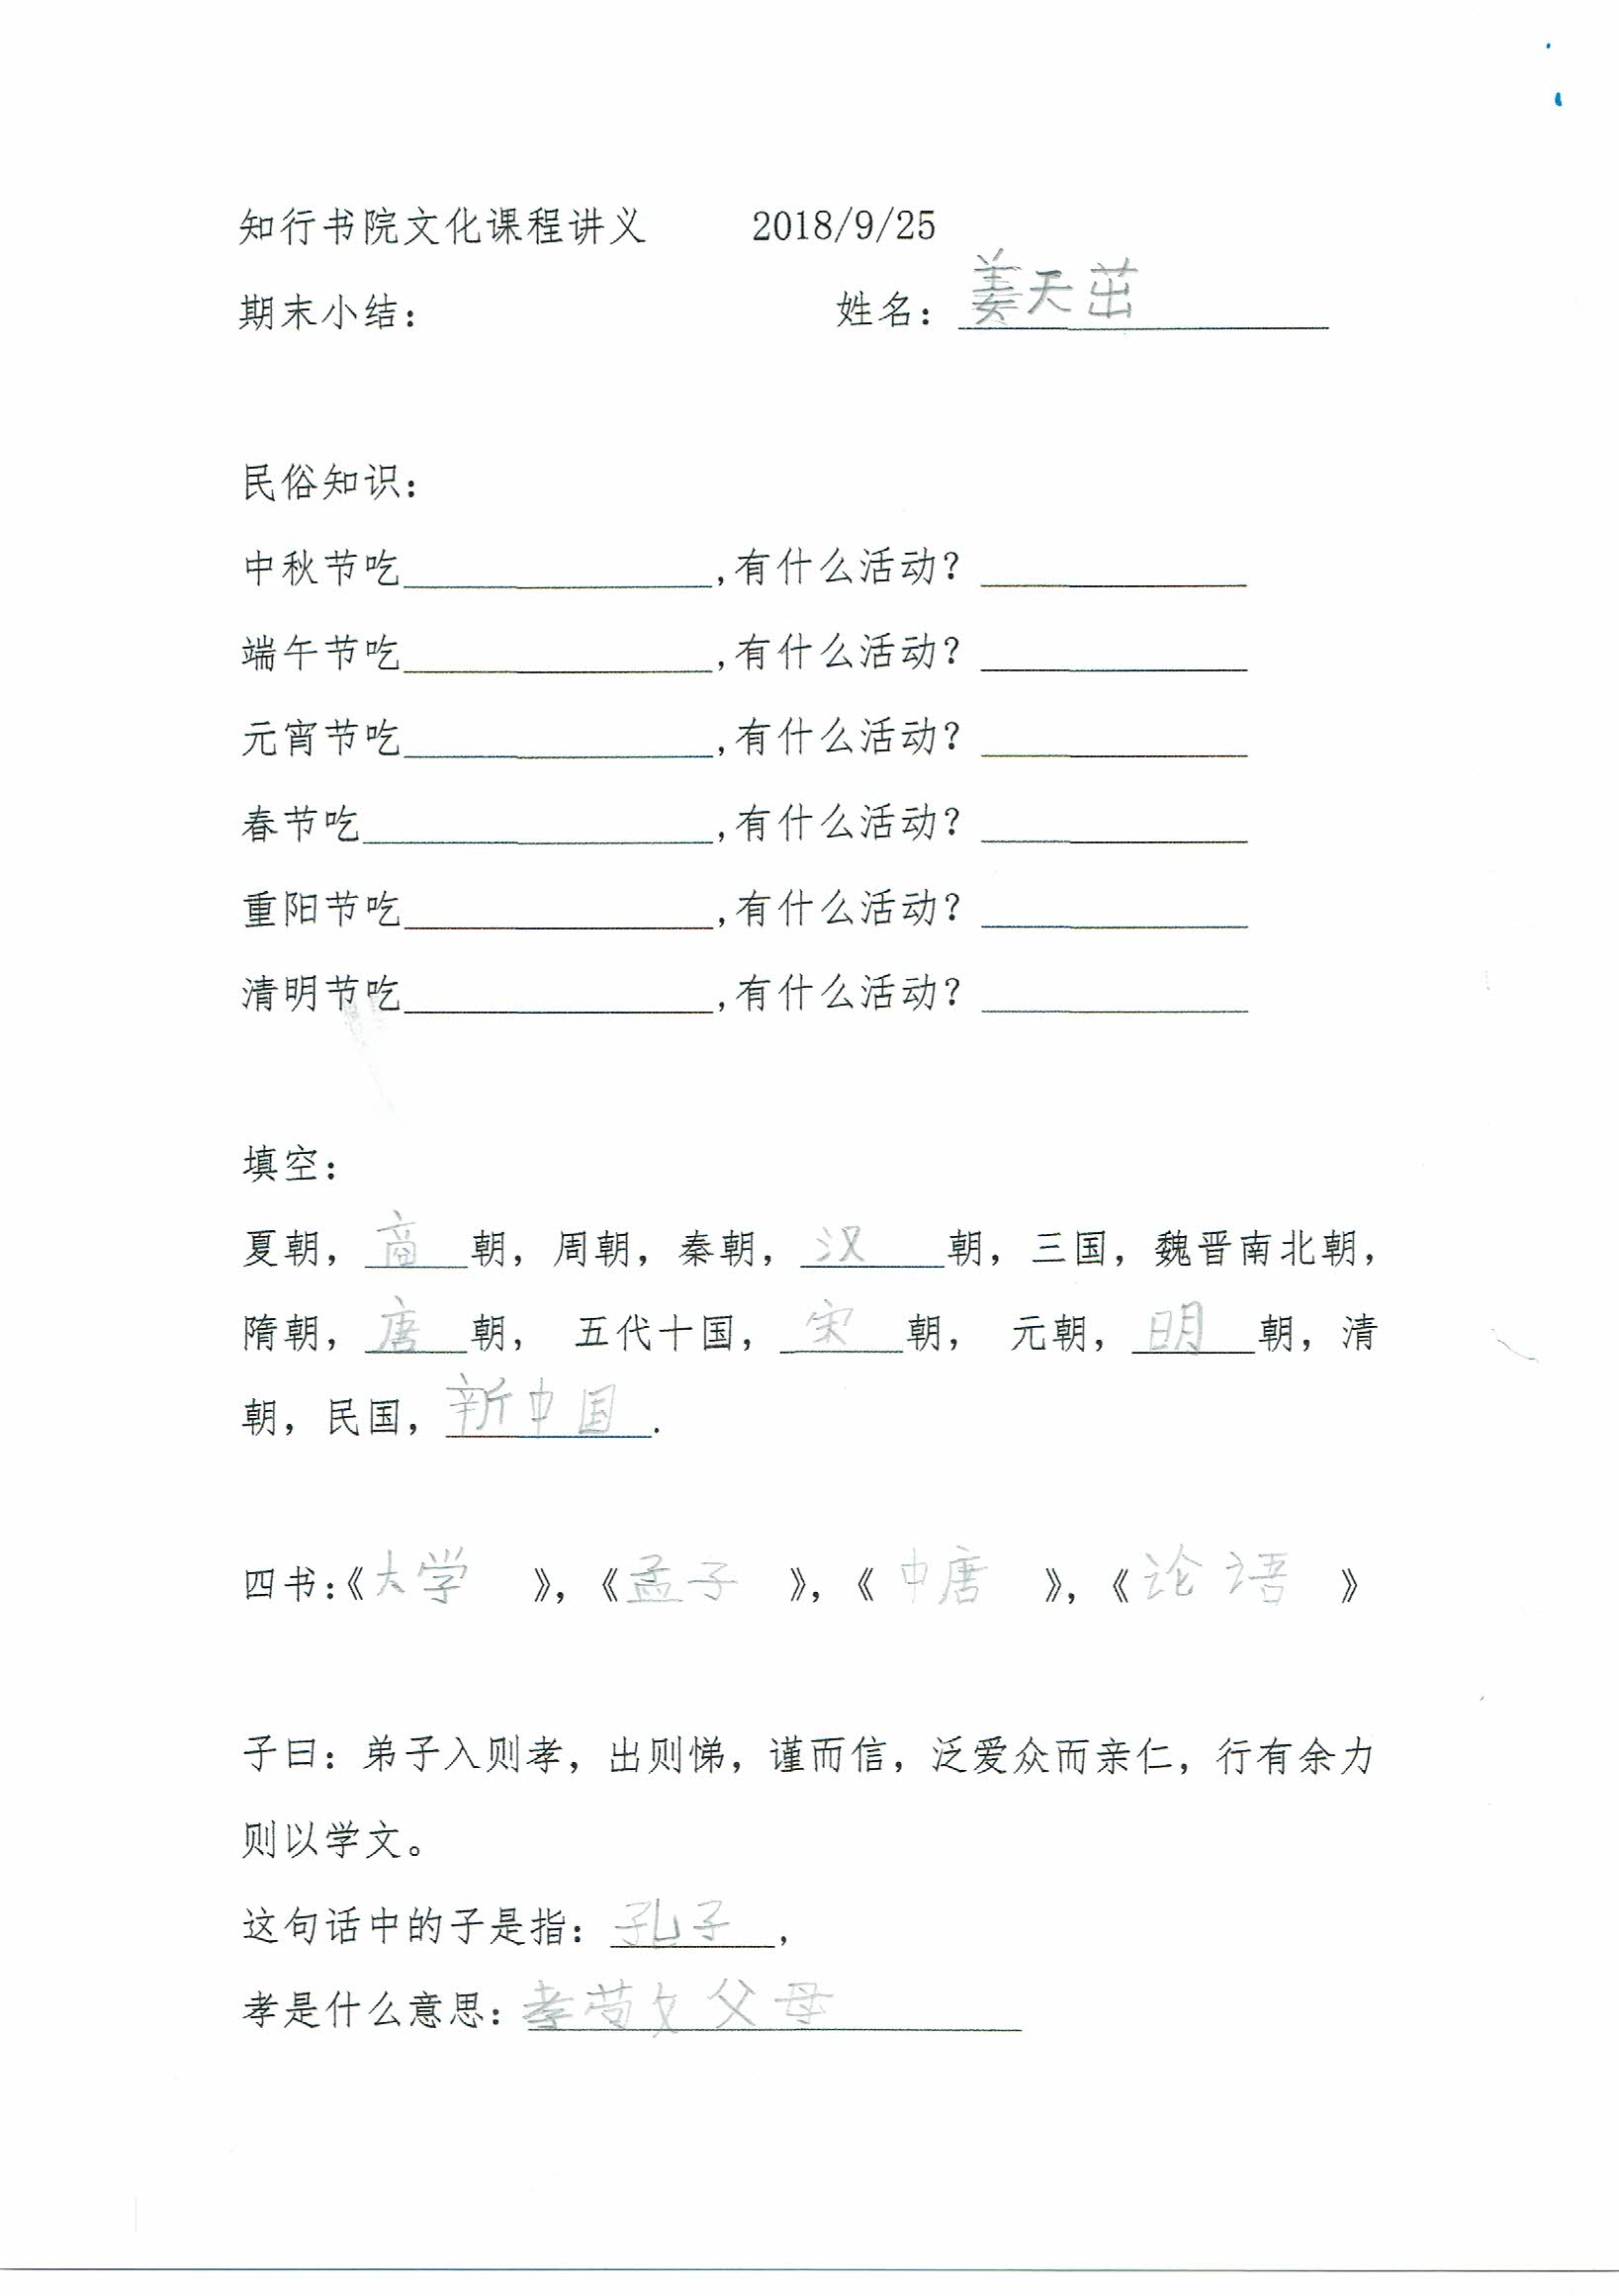 知行书院文化课程讲义 2018/9/25
期末小结： 姓名：姜天茁
民俗知识：
中秋节吃____________,有什么活动？__________
端午节吃____________,有什么活动？__________
元宵节吃____________,有什么活动？__________
春节吃____________,有什么活动？__________
重阳节吃____________,有什么活动？__________
清明节吃____________,有什么活动？__________
填空：
夏朝，商朝，周朝，秦朝，汉朝，三国，魏晋南北朝，
隋朝，唐朝， 五代十国，宋朝， 元朝，明朝，清
朝，民国，新中国.
四书：《大学》，《孟子》，《中唐》，《论语》
子曰：弟子入则孝，出则悌，谨而信，泛爱众而亲仁，行有余力
则以学文。
这句话中的子是指：孔子，
孝是什么意思：孝敬父母